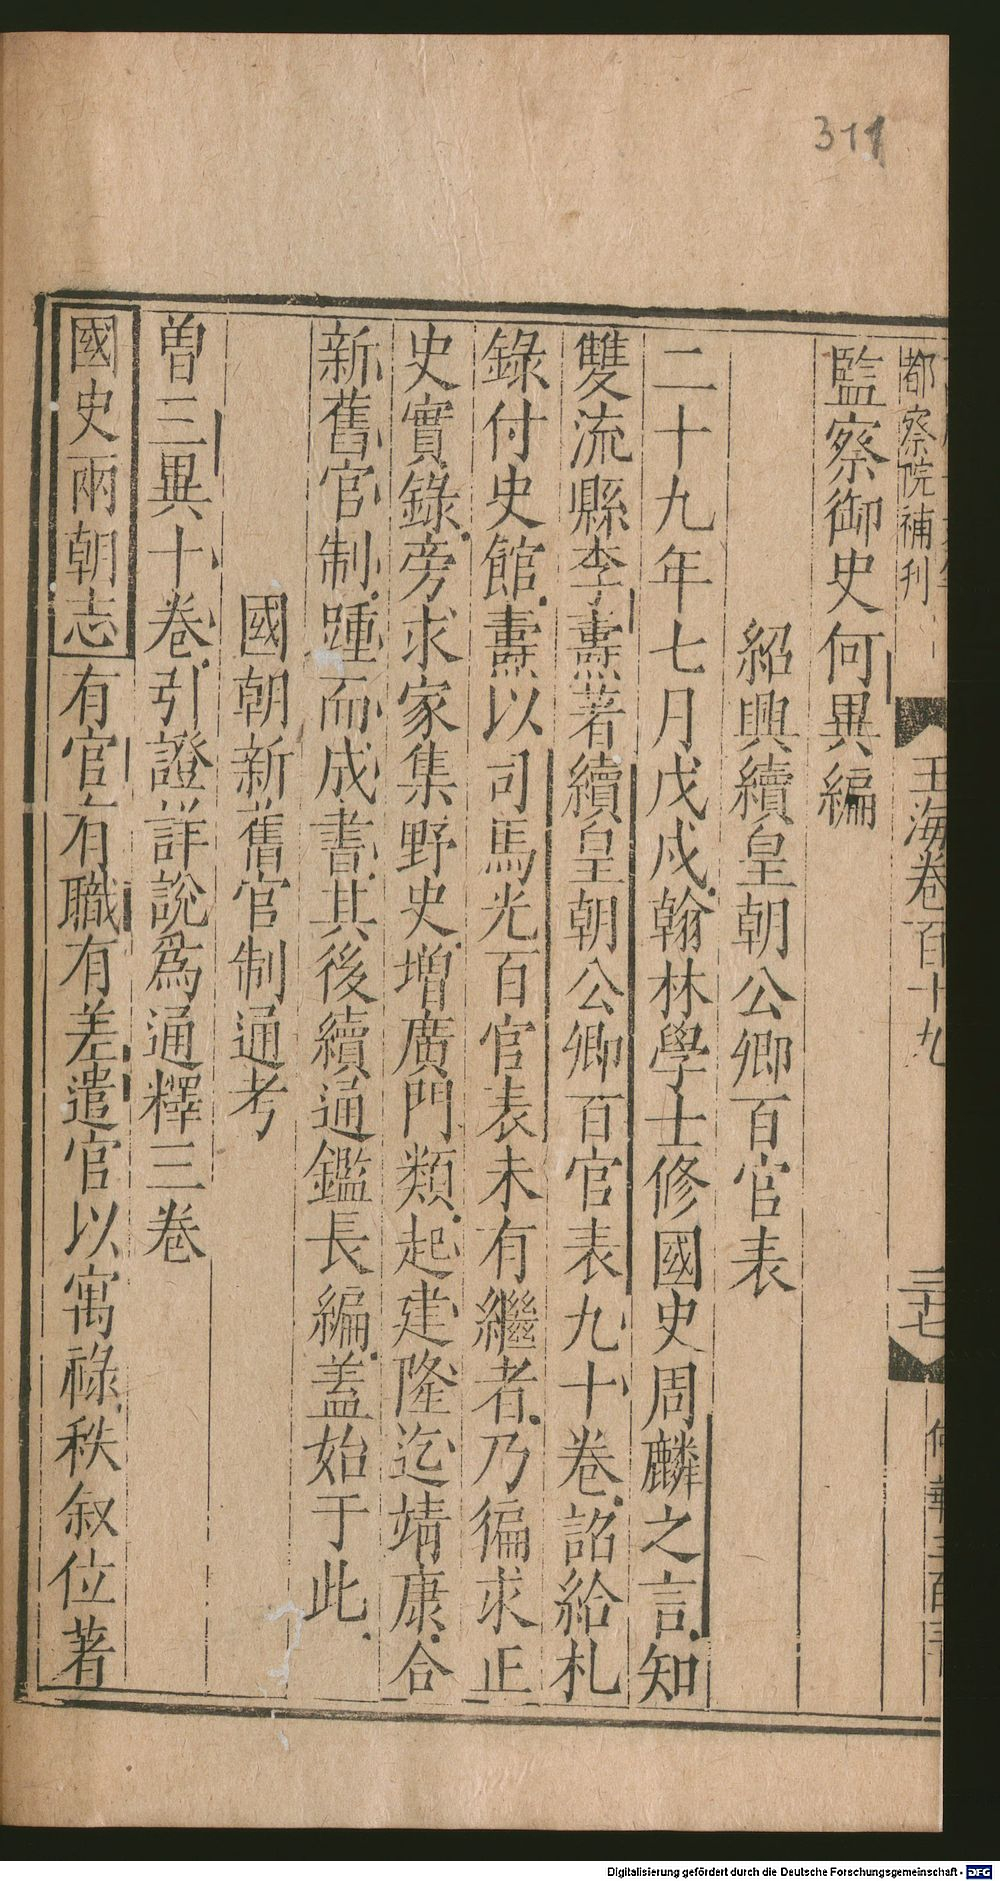 311
都察院補刊
玉海卷百十九
三七
監察御史何異編
紹興續皇朝公卿百官表
二十九年七月戊戌翰林學士修國史周麟之言知
雙流縣李燾著續皇朝公卿百官表九十卷詔給札
錄付史館燾以司馬光百官表未有繼者乃徧求正
史實錄旁求家集野史增廣門類起建隆迄靖康合
新舊官制踵而成書其後續通鑑長編蓋始于此
國朝新舊官制通考
曾三異十卷引證詳說爲通釋三卷
國史兩朝志有官有職有差遣官以寓祿秩叙位著
Digitalisierung gefördert durch die Deutsche Forschungsgemeinschaft - DFG